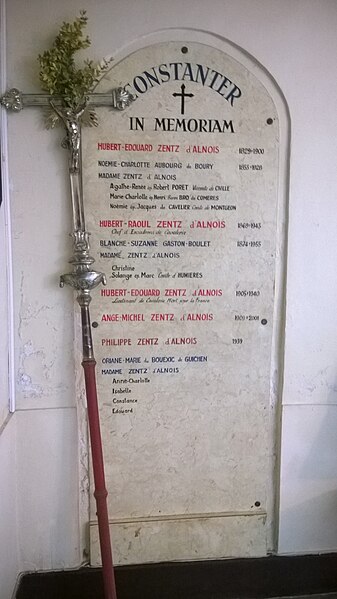 CONSTANTER
IN MEMORIAM
HUBERT-EDOUARD ZENTZ d'ALNOIS 1829-1900
NOEMIE-CHARLOTTE AUBOURG de BOURY 1835-1928
MADAME ZENTZ d'ALNOIS
Agathe-Renée ep. Robert PORET Vicomte de CIVILLE
Marie Charlotte ep. Henri Baron BIRO du COMERES
Noémie ep. Jacques du CAVELIER Comte de MONTGEON
HUBERT-RAOUL ZENTZ d'ALNOIS 1869-1943
Chef d'Escadrons de Cavalerie
BLANCHE-SUZANNE GASTON-BOULET 1874-1955
MADAME, ZENTZ d'ALNOIS
Christine
Solange ep. Marc Comte d'HUMIERES
HUBERT-EDOUARD ZENTZ d'ALNOIS 1905-1940
Lieutenant de Cavalerie Mort pour la France
ANGE-MICHEL ZENTZ d'ALNOIS 1909-2001
PHILIPPE ZENTZ d'ALNOIS 1939
ORIANE-MARIE du BOUEXIC de GUICHEN
MADAME ZENTZ d'ALNOIS
Anne-Charlotte
Isabelle
Constance
Edouard